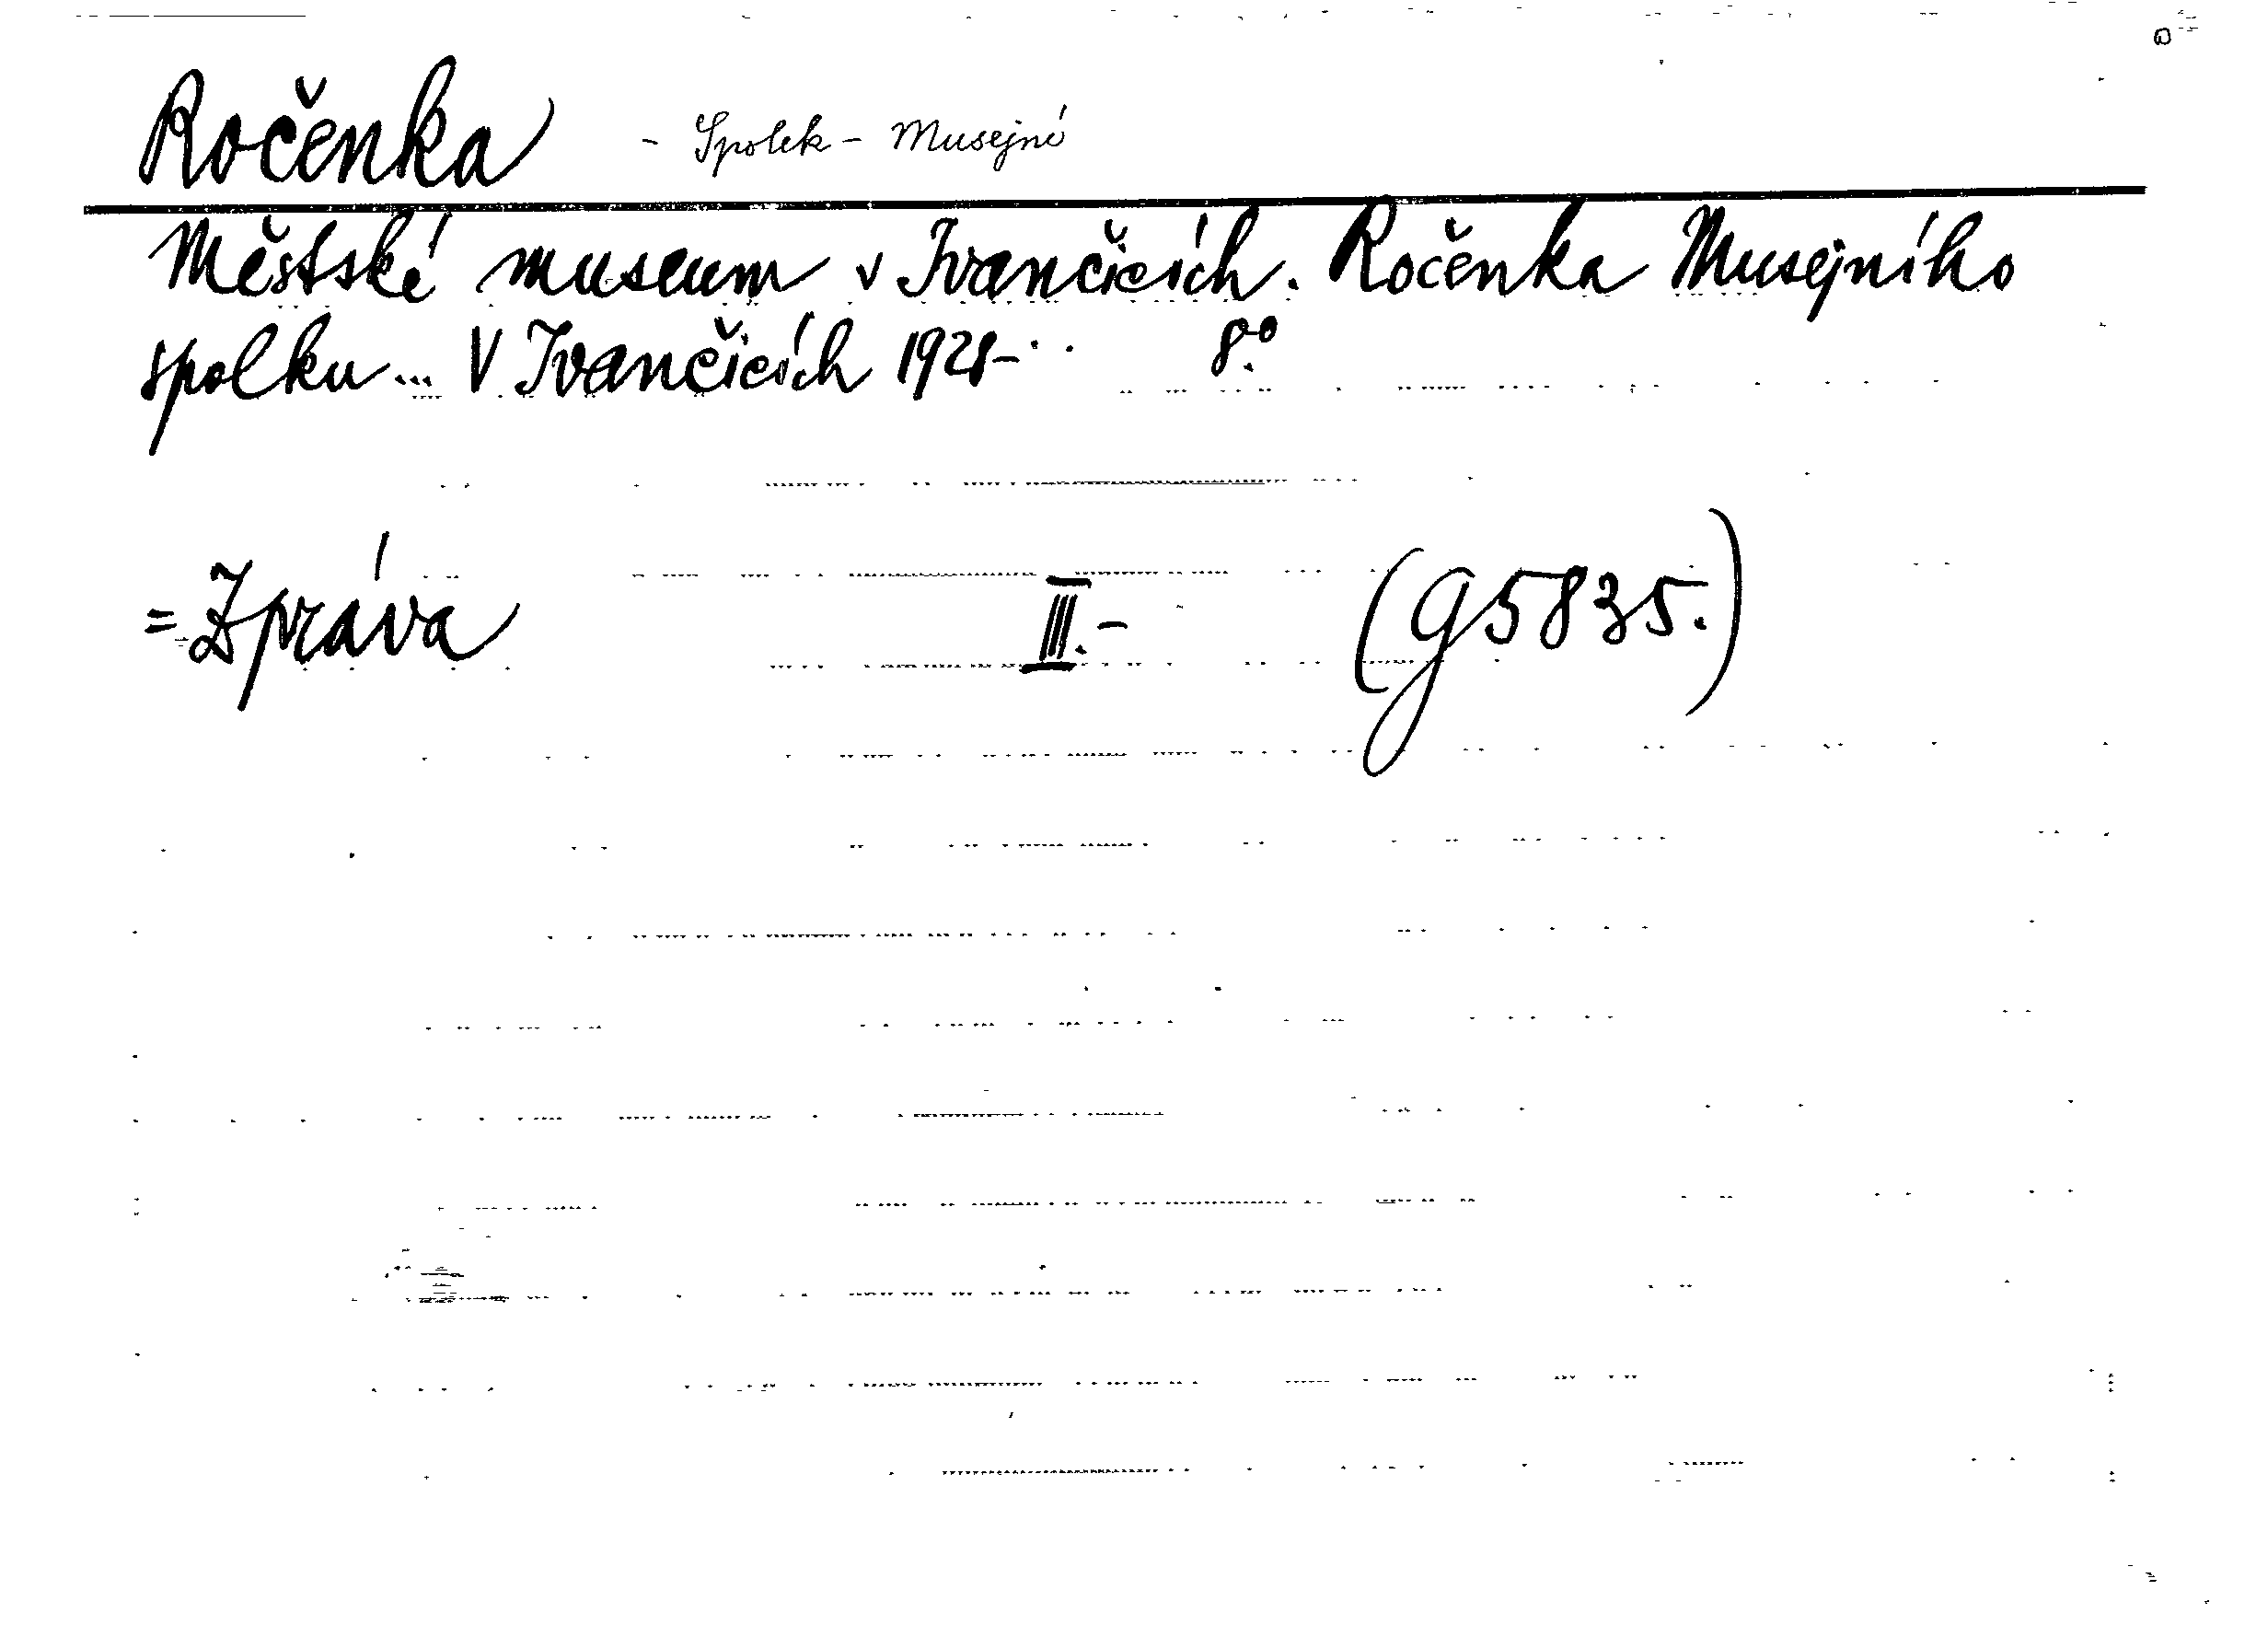 Ročenka - Spolek - Musejní
Městské museum v Ivančicích. Ročenka Musejního
spolku... V Ivančicích 1928-.. 8.°
= Zpráva III.- (g5835.)